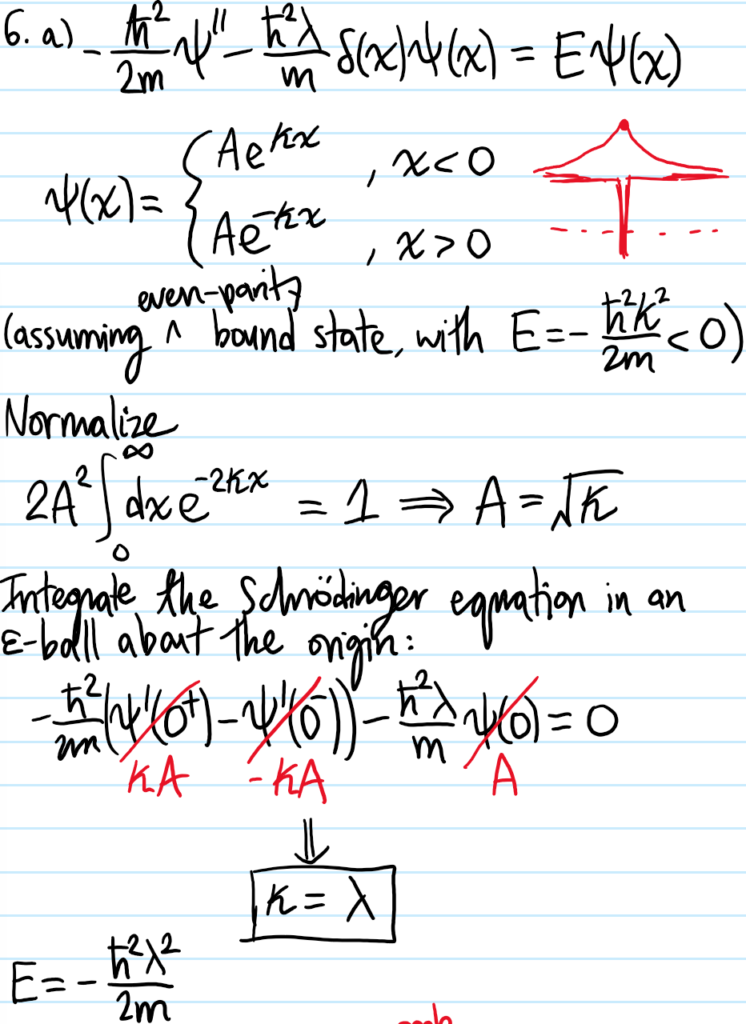 6. a) -ℏ²/2m ψ'' - ℏ²λ/m δ(x)ψ(x) = Eψ(x)
ψ(x) = { Ae^{κx} , x < 0
Ae^{-κx} , x > 0
even-parity
(assuming ^ bound state, with E = - ℏ²κ²/2m < 0)
Normalize
2A² ∫_0^∞ dx e^{-2κx} = 1 ⟹ A = √κ
Integrate the Schrödinger equation in an
ε-ball about the origin:
-ℏ²/2m (ψ'(0⁺) - ψ'(0⁻)) - ℏ²λ/m ψ(0) = 0
κA -κA A
⇓
κ = λ
E = - ℏ²λ²/2m